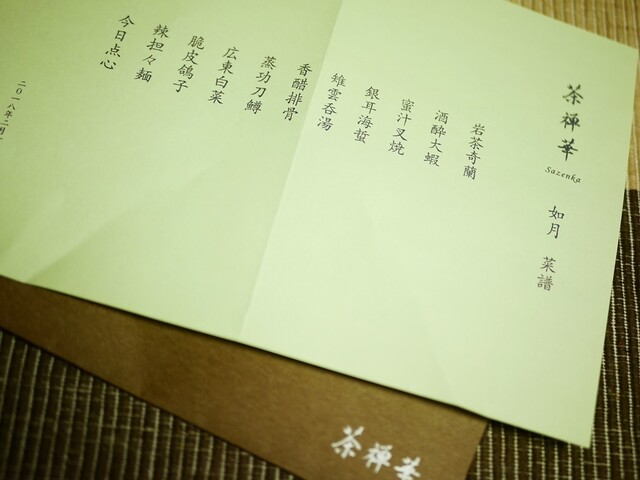 茶禅華
Sazenka
如月 菜譜
岩茶奇蘭
酒酔大蝦
蜜汁叉焼
銀耳海蜇
雉雲呑湯
香醋排骨
蒸功刀鱒
広東白菜
脆皮鴿子
辣担々麺
今日点心
二〇一八年二月
茶禅華